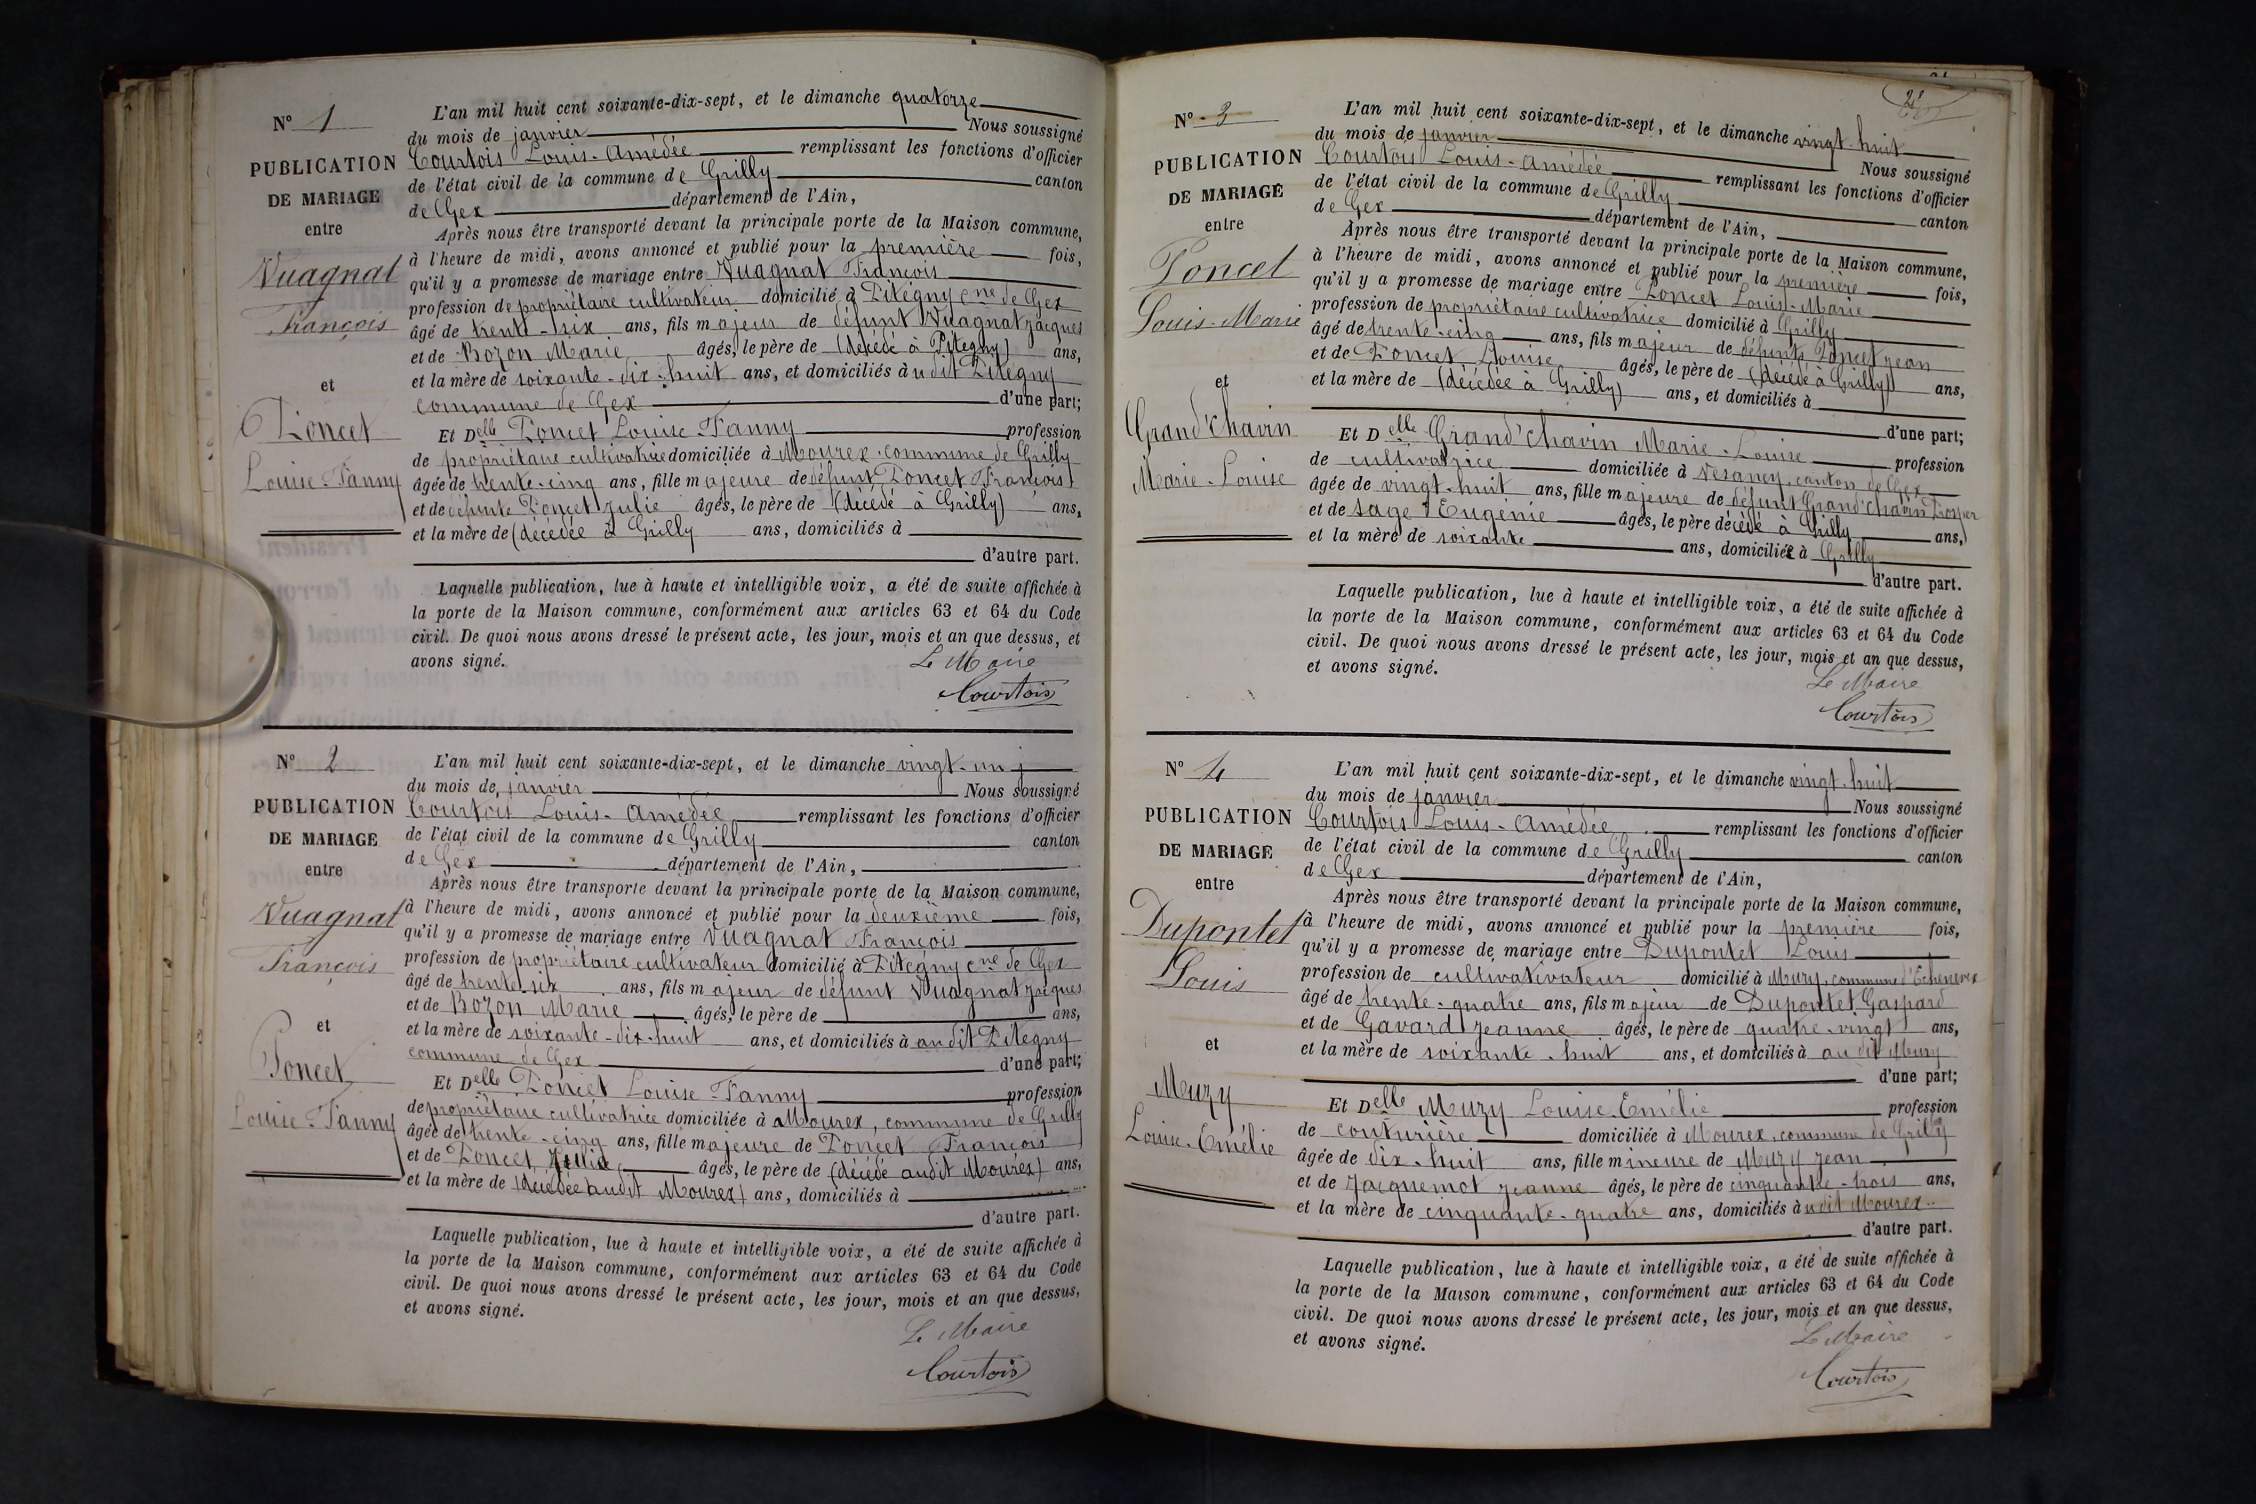 N° 1
PUBLICATION
DE MARIAGE
entre
Vuagnat
François
et
Poncet
Louise-Fanny
L'an mil huit cent soixante-dix-sept, et le dimanche quatorze
du mois de janvier Nous soussigné
Courtois Louis-Amédée remplissant les fonctions d'officier
de l'état civil de la commune de Grilly canton
de Gex département de l'Ain,
Après nous être transporté devant la principale porte de la Maison commune,
à l'heure de midi, avons annoncé et publié pour la première fois,
qu'il y a promesse de mariage entre Vuagnat François
profession de propriétaire cultivateur domicilié à Pitegny cne de Gex
âgé de trente-six ans, fils majeur de défunt Vuagnat Jacques
et de Bozon Marie âgés, le père de (décédé à Pitegny) ans,
et la mère de soixante-dix-huit ans, et domiciliés à udit Pitegny
commune de Gex d'une part;
Et Delle Poncet Louise-Fanny profession
de propriétaire cultivatrice domiciliée à Mourex commune de Grilly
âgée de trente-cinq ans, fille majeure de défunt Poncet François
et de défunte Poncet Julie âgés, le père de (décédé à Grilly) ans,
et la mère de (décédée à Grilly ans, domiciliés à
d'autre part.
Laquelle publication, lue à haute et intelligible voix, a été de suite affichée à
la porte de la Maison commune, conformément aux articles 63 et 64 du Code
civil. De quoi nous avons dressé le présent acte, les jour, mois et an que dessus, et
avons signé.
Le Maire
Courtois
N° 2
PUBLICATION
DE MARIAGE
entre
Vuagnat
François
et
Poncet
Louise-Fanny
L'an mil huit cent soixante-dix-sept, et le dimanche vingt-un
du mois de janvier Nous soussigné
Courtois Louis-Amédée remplissant les fonctions d'officier
de l'état civil de la commune de Grilly canton
de Gex département de l'Ain,
Après nous être transporté devant la principale porte de la Maison commune,
à l'heure de midi, avons annoncé et publié pour la deuxième fois,
qu'il y a promesse de mariage entre Vuagnat François
profession de propriétaire cultivateur domicilié à Pitegny cne de Gex
âgé de trente six ans, fils majeur de défunt Vuagnat Jacques
et de Bozon Marie âgés, le père de ans,
et la mère de soixante-dix-huit ans, et domiciliés à audit Pitegny
commune de Gex d'une part;
Et Delle Poncet Louise-Fanny profession
de propriétaire cultivatrice domiciliée à Mourex, commune de Grilly
âgée de trente-cinq ans, fille majeure de Poncet François
et de Poncet Julie âgés, le père de (décédé audit Mourex) ans,
et la mère de (décédée audit Mourex) ans, domiciliés à
d'autre part.
Laquelle publication, lue à haute et intelligible voix, a été de suite affichée à
la porte de la Maison commune, conformément aux articles 63 et 64 du Code
civil. De quoi nous avons dressé le présent acte, les jour, mois et an que dessus,
et avons signé.
Le Maire
Courtois
N° 3
PUBLICATION
DE MARIAGE
entre
Poncet
Louis-Marie
et
Grand'chavin
Marie-Louise
L'an mil huit cent soixante-dix-sept, et le dimanche vingt-huit
du mois de janvier Nous soussigné
Courtois Louis-Amédée remplissant les fonctions d'officier
de l'état civil de la commune de Grilly canton
de Gex département de l'Ain,
Après nous être transporté devant la principale porte de la Maison commune,
à l'heure de midi, avons annoncé et publié pour la première fois,
qu'il y a promesse de mariage entre Poncet Louis-Marie
profession de propriétaire cultivatrice domicilié à Grilly
âgé de trente-cinq ans, fils majeur de défunts Poncet Jean
et de Poncet Louise âgés, le père de (décédé à Grilly) ans,
et la mère de (décédée à Grilly) ans, et domiciliés à
d'une part;
Et Delle Grand'chavin Marie-Louise profession
de cultivatrice domiciliée à Vesancy, canton de Gex
âgée de vingt-huit ans, fille majeure de défunt Grand'chavin Prosper
et de Sage Eugénie âgés, le père décédé à Grilly ans,
et la mère de soixante ans, domiciliée à Grilly
d'autre part.
Laquelle publication, lue à haute et intelligible voix, a été de suite affichée à
la porte de la Maison commune, conformément aux articles 63 et 64 du Code
civil. De quoi nous avons dressé le présent acte, les jour, mois et an que dessus,
et avons signé.
Le Maire
Courtois
N° 4
PUBLICATION
DE MARIAGE
entre
Dupontet
Louis
et
Muzy
Louise-Emélie
L'an mil huit cent soixante-dix-sept, et le dimanche vingt-huit
du mois de janvier Nous soussigné
Courtois Louis-Amédée remplissant les fonctions d'officier
de l'état civil de la commune de Grilly canton
de Gex département de l'Ain,
Après nous être transporté devant la principale porte de la Maison commune,
à l'heure de midi, avons annoncé et publié pour la première fois,
qu'il y a promesse de mariage entre Dupontet Louis
profession de cultivativateur domicilié à Mury, commune d'Echenevex
âgé de trente-quatre ans, fils majeur de Dupontet Gaspard
et de Gavard Jeanne âgés, le père de quatre-vingt ans,
et la mère de soixante-huit ans, et domiciliés à au dit Mury
d'une part;
Et Delle Muzy Louise-Emélie profession
de couturière domiciliée à Mourex, commune de Grilly
âgée de dix-huit ans, fille mineure de Muzy Jean
et de Jacquemot Jeanne âgés, le père de cinquante-trois ans,
et la mère de cinquante-quatre ans, domiciliés à udit Mourex
d'autre part.
Laquelle publication, lue à haute et intelligible voix, a été de suite affichée à
la porte de la Maison commune, conformément aux articles 63 et 64 du Code
civil. De quoi nous avons dressé le présent acte, les jour, mois et an que dessus,
et avons signé.
Le Maire
Courtois